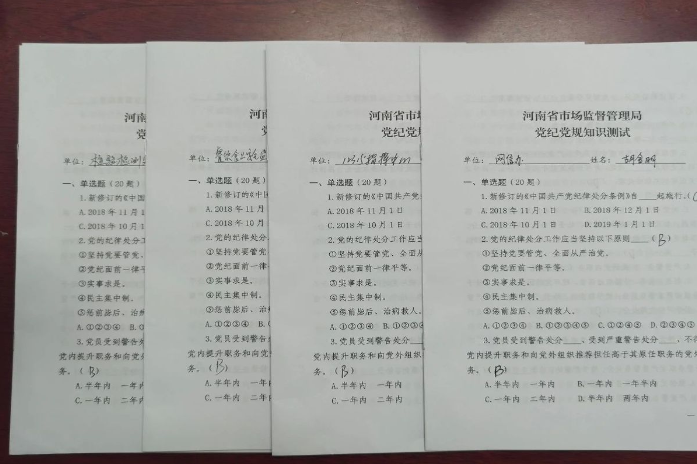 河南
党
单位：
一、单选题（20题）
1.新修订的《中国
A.2018年11月1
C.2018年10月1
2.党的纪律处分工
①坚持党要管党、
②党纪面前一律
③实事求是。
④民主集中制。
⑤惩前毖后、治病
A.①②③④ B.
3.党员受到警告处
党内提升职务和向党
务。（B）
A.半年内 一年
C.一年内 二年
河南
党
单位：
一、单选题（20题）
1.新修订的《中国
A.2018年11月
C.2018年10月
2.党的纪律处分
①坚持党要管党
②党纪面前一律
③实事求是。
④民主集中制。
⑤惩前毖后、治
A.①②③④ B.
3.党员受到警告
党内提升职务和向
务。（B）
A.半年内 一年
C.一年内 二年
河南省市场
党纪党规
单位：
一、单选题（20题）
1.新修订的《中国共产党
A.2018年11月1日
C.2018年10月1日
2.党的纪律处分工作应
①坚持党要管党、全面从
②党纪面前一律平等。
③实事求是。
④民主集中制。
⑤惩前毖后、治病救人。
A.①②③④ B.①②③
3.党员受到警告处分
党内提升职务和向党外组
务。（B）
A.半年内 一年内
C.一年内 二年内
河南省市场监督管理局
党纪党规知识测试
单位：网信办 姓名：
一、单选题（20题）
1.新修订的《中国共产党纪律处分条例》自____起施行。（
A.2018年11月1日 B.2018年12月1日
C.2018年10月1日 D.2019年1月1日
2.党的纪律处分工作应当坚持以下原则____（B）
①坚持党要管党、全面从严治党。
②党纪面前一律平等。
③实事求是。
④民主集中制。
⑤惩前毖后、治病救人。
A.①②③④ B.①②③④⑤ C.①②④⑤ D.②③④⑤
3.党员受到警告处分____、受到严重警告处分____，不得
党内提升职务和向党外组织推荐担任高于其原任职务的党外
务。（B）
A.半年内 一年内 B.一年内 一年半内
C.一年内 二年内 D.半年内 两年内